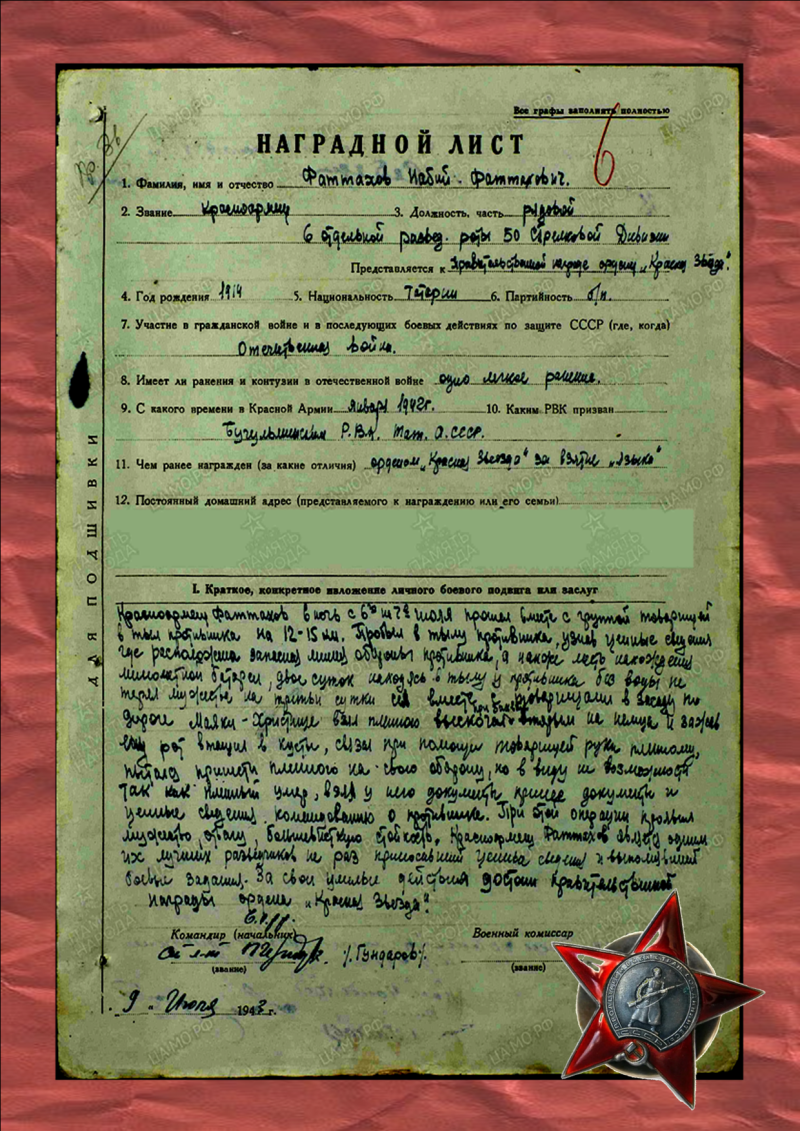 Все графы заполнить полностью
6
НАГРАДНОЙ ЛИСТ
1. Фамилия, имя и отчество Фаттахов Набий Фаттахович.
2. Звание красноармеец 3. Должность, часть рядовой
6 отдельной развед. роты 50 Стрелковой Дивизии
Представляется к Правительственной награде ордену „Красная Звезда".
4. Год рождения 1914 5. Национальность Татарин 6. Партийность б/п.
7. Участие в гражданской войне и в последующих боевых действиях по защите СССР (где, когда)
Отечественная война.
8. Имеет ли ранения и контузии в отечественной войне одно легкое ранение.
9. С какого времени в Красной Армии январь 1942г. 10. Каким РВК призван
Бугульминским Р.В.К. Тат. А.ССР.
11. Чем ранее награжден (за какие отличия) орденом „Красная Звезда" за взятие „языка"
12. Постоянный домашний адрес (представляемого к награждению или его семьи)
ДЛЯ ПОДШИВКИ
I. Краткое, конкретное изложение личного боевого подвига или заслуг
Красноармеец Фаттахов в ночь с 6го на 7е июля прошел вместе с группой товарищей
в тыл противника на 12-15 км. Пробыл в тылу противника, узнав ценные сведения
где расположена запасная линия обороны противника, а также место нахождения
минометной батареи, двое суток находясь в тылу у противника без воды не
терял мужества на третьи сутки сел вместе с товарищами в засаду по
дороге Маяки-Христище взял пленного выскочил вторым на немца и зажав
ему рот втащил в кусты, связал при помощи товарищей руки пленному,
пытался принести пленного на свою оборону, но в виду не возможности
так как пленный умер, взял у него документы принес документы и
ценные сведения командованию о противнике. При этой операции проявил
мужество, отвагу, большевистскую стойкость. Красноармеец Фаттахов является одним
их лучших разведчиков не раз приносивший ценные сведения и выполнявший
боевые задания. За свои умелые действия достоин правительственной
награды ордена „Красная Звезда".
Командир (начальник) Военный комиссар
/Гундаров/.
(звание) (звание)
9 Июля 1943 г.